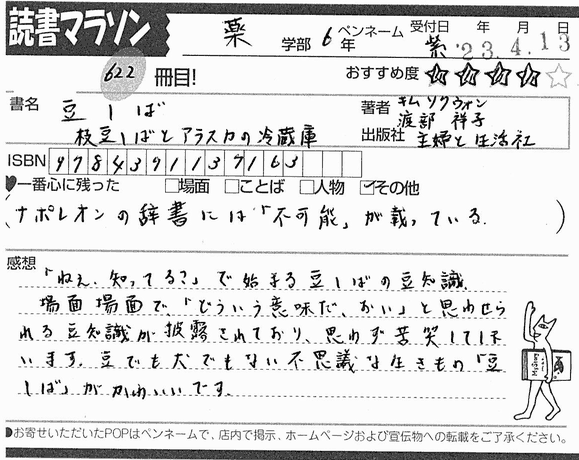 読書マラソン
薬 学部 6 年 ペンネーム 紫 受付日 年 月 日
'23.4.13
622 冊目!
おすすめ度 ★★★★☆
書名 豆しば
枝豆しばとアラスカの冷蔵庫
著者 キム ソクウォン
渡部 祥子
出版社 主婦と生活社
ISBN 9784391137163
♥一番心に残った □場面 □ことば □人物 ☑その他
(ナポレオンの辞書には「不可能」が載っている。)
感想
「ねぇ、知ってる?」で始まる豆しばの豆知識。
場面場面で「どういう意味だ、おい」と思わせら
れる豆知識が披露されており、思わず苦笑してしま
います。豆でも犬でもない不思議な生きもの「豆
しば」がかわいいです。
●お寄せいただいたPOPはペンネームで、店内で掲示、ホームページおよび宣伝物への転載をご了承ください。